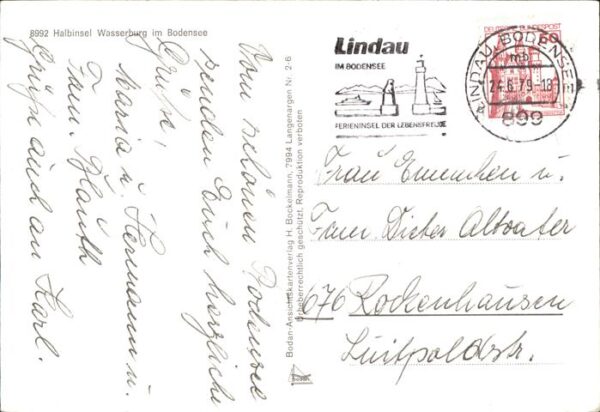 8992 Halbinsel Wasserburg im Bodensee
Vom schönen Bodensee
senden Euch herzliche
Grüße!
Maria u. Hermann u.
Fam. Pfauth
Grüße auch an Karl.
Bodan-Ansichtskartenverlag H. Bockelmann, 7994 Langenargen Nr. 2-6
Urheberrechtlich geschützt. Reproduktion verboten
Lindau
IM BODENSEE
FERIENINSEL DER LEBENSFREUDE
DEUTSCHE BUNDESPOST
60
LINDAU, BODENSEE
mb
24.8.79-18
899
Frau Emmchen u.
Fam. Dieter Altvater
676 Rockenhausen
Luitpoldstr.